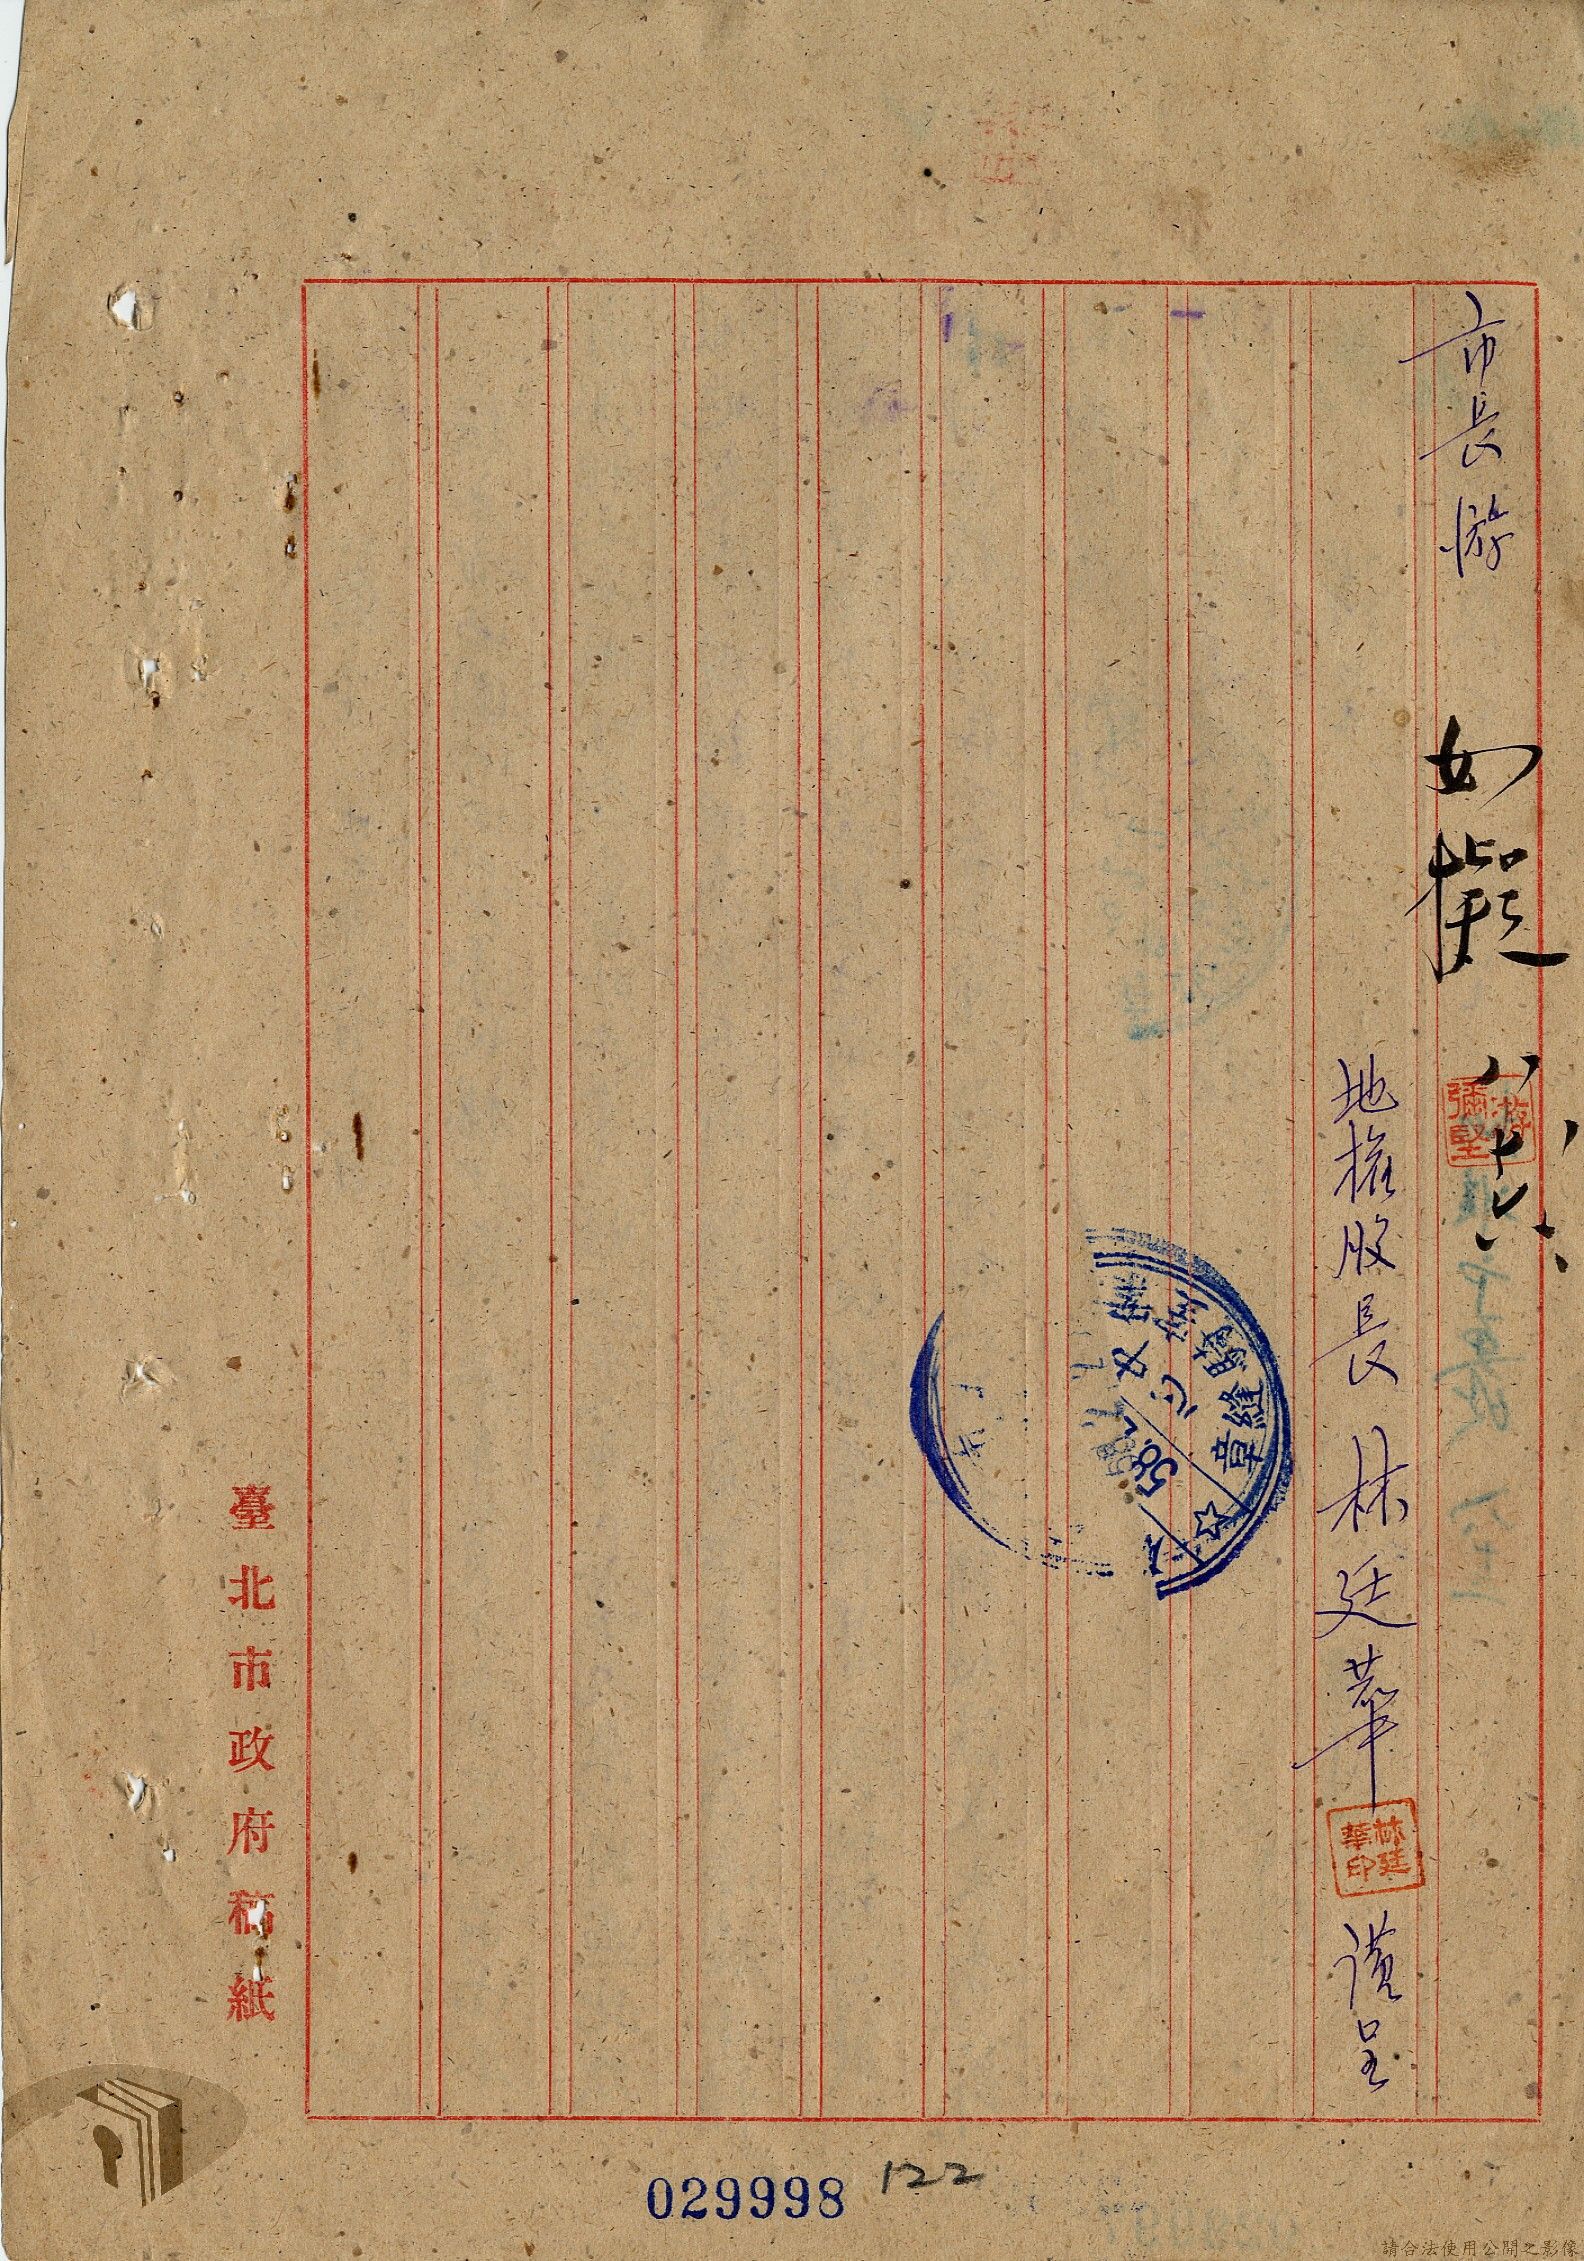 市長游
如擬
八
十六
游彌堅
地權股長林廷華
林廷華印
謹呈
騎縫章
58.
臺北市政府稿紙
029998
122
請合法使用公開之影像